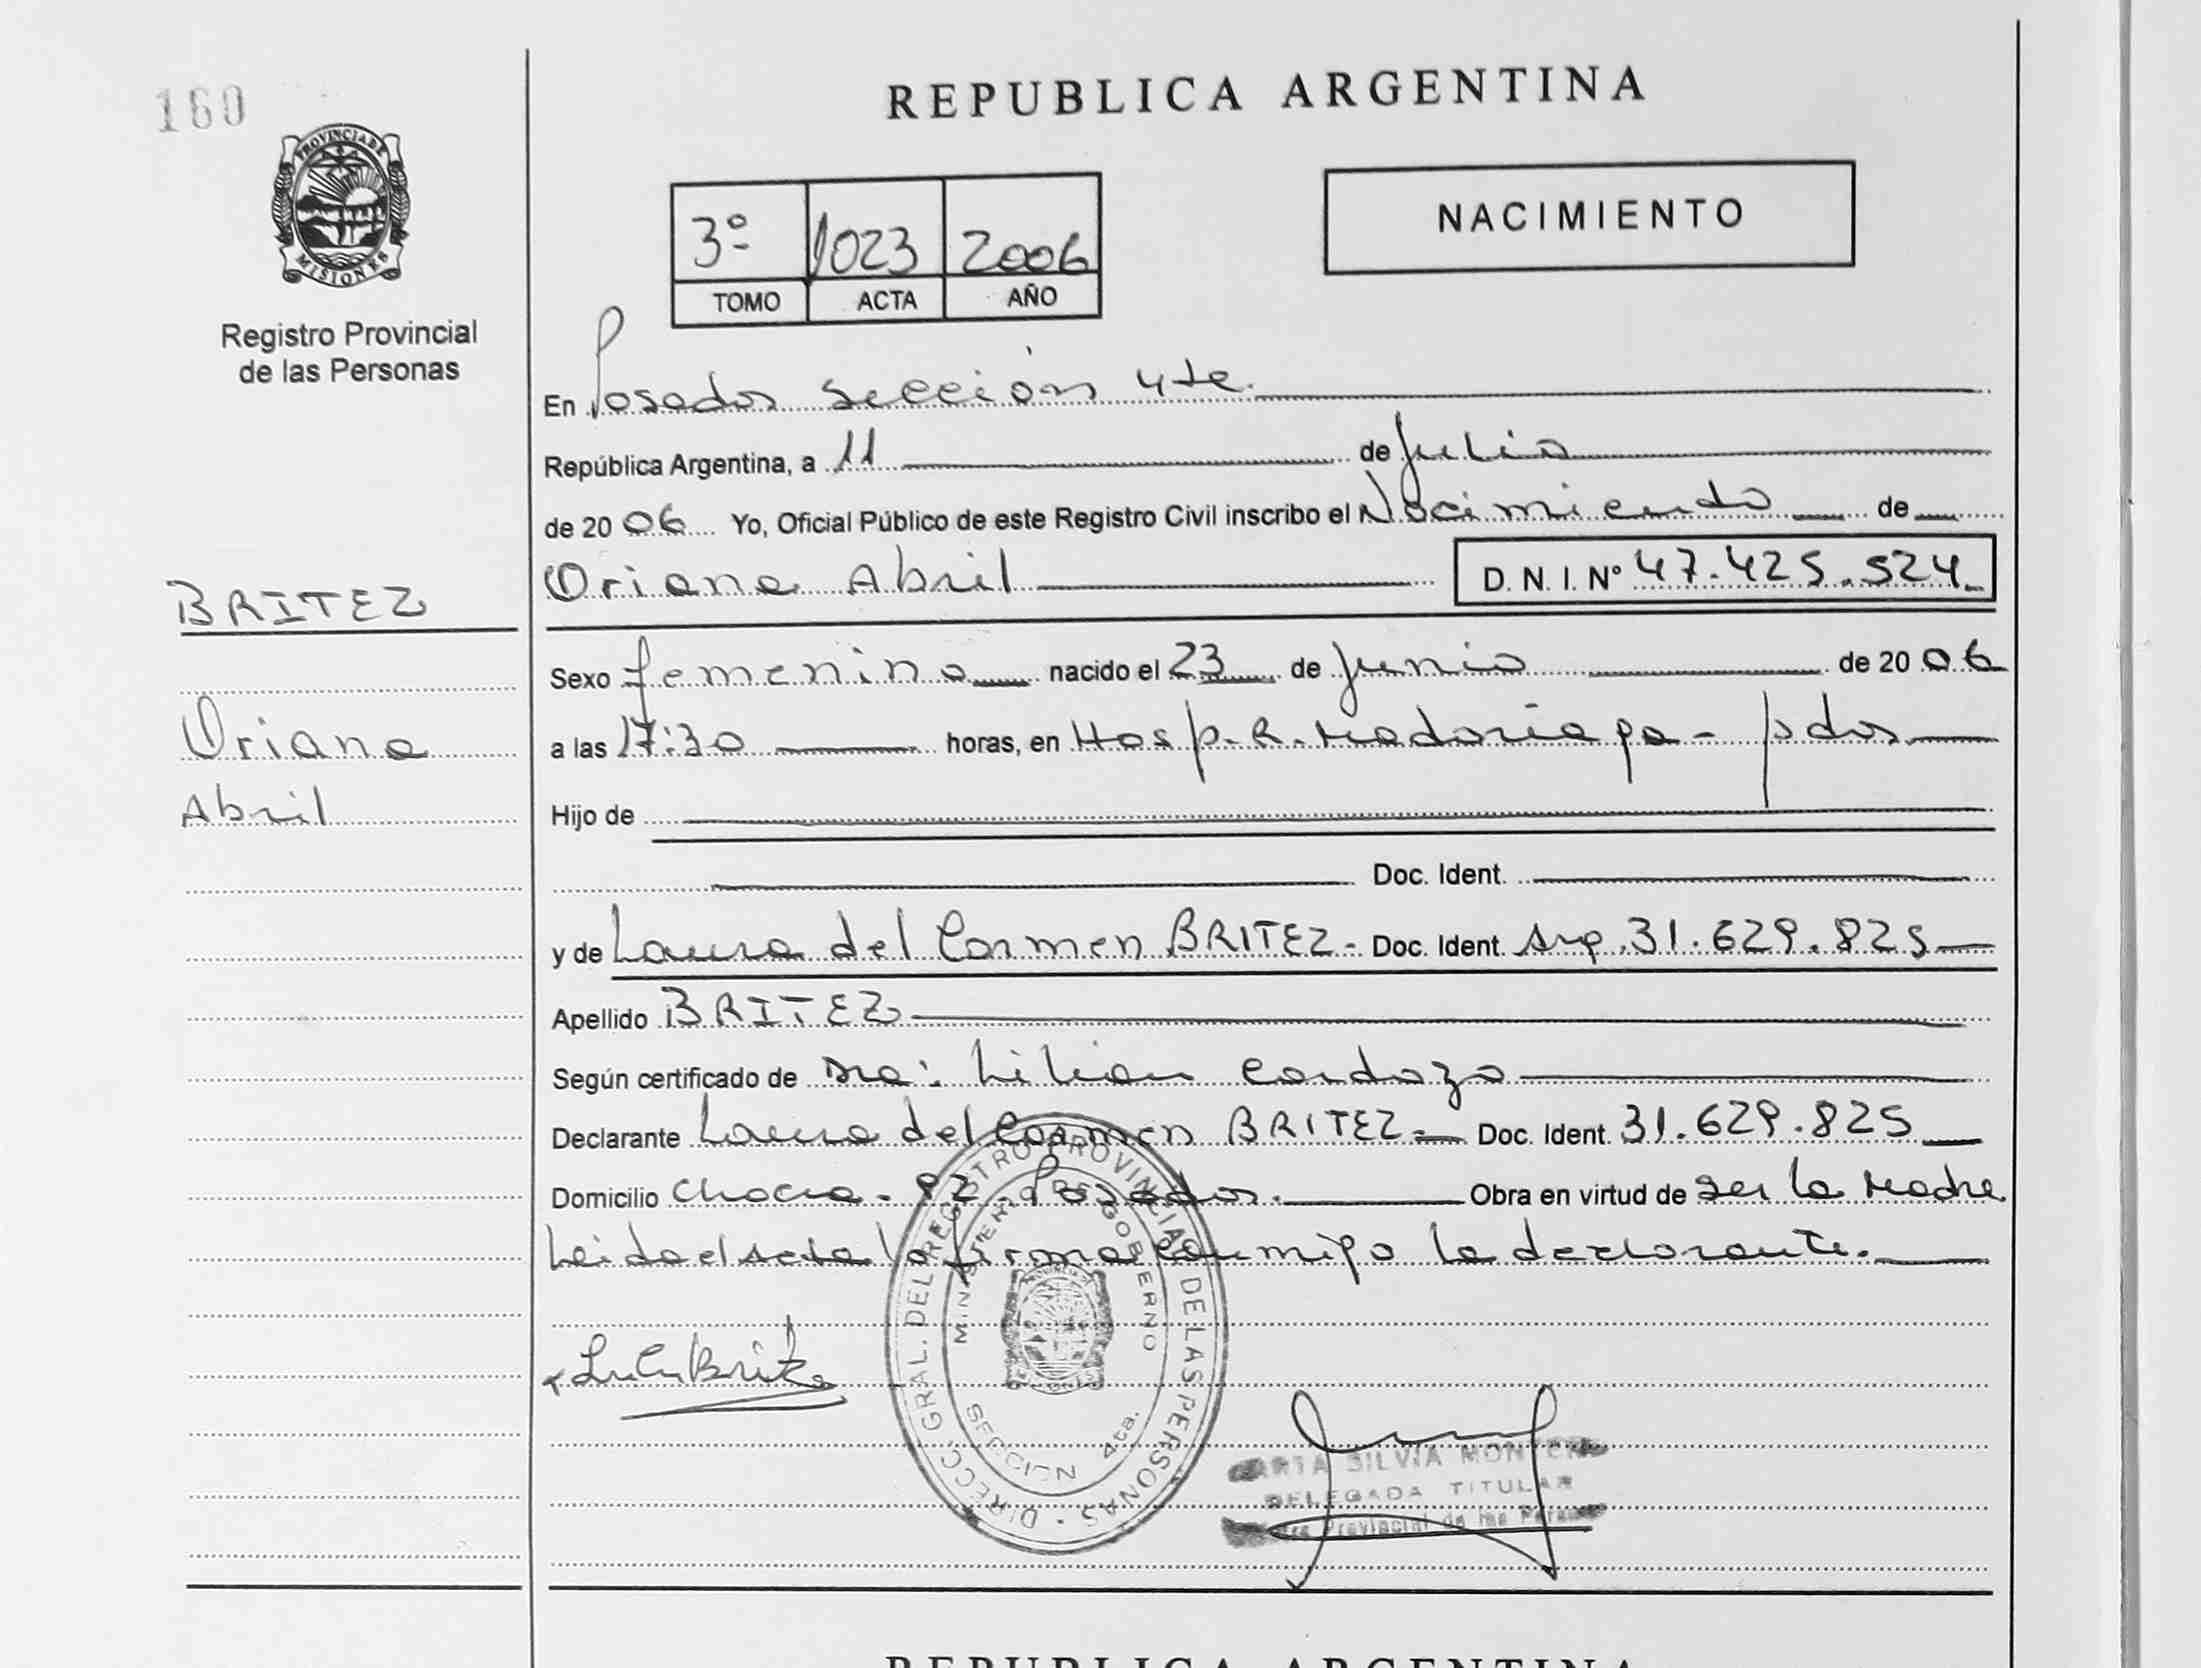 160
PROVINCIA DE
MISIONES
Registro Provincial
de las Personas
REPUBLICA ARGENTINA
3º 1023 2006
TOMO ACTA AÑO
NACIMIENTO
En Posadas sección 4ta.
República Argentina, a 11 de Julio
de 2006 Yo, Oficial Público de este Registro Civil inscribo el Nacimiento de
Oriana Abril D. N. I. Nº 47.425.524
BRITEZ
Oriana
Abril
Sexo femenino nacido el 23 de Junio de 2006
a las 17:30 horas, en Hosp. R. Madariaga - pdas
Hijo de
Doc. Ident.
y de Laura del Carmen BRITEZ - Doc. Ident. Arg. 31.629.825
Apellido BRITEZ
Según certificado de Dra: Lilian Cardozo
Declarante Laura del Carmen BRITEZ - Doc. Ident. 31.629.825
Domicilio Chacra - 92 - Posadas. Obra en virtud de ser la Madre
Leida el acta la firma conmigo la declarante.
DIRECC. GRAL. DEL REGISTRO PROVINCIAL DE LAS PERSONAS
MINISTERIO DE GOBIERNO
SECCION 4ta.
SILVIA
DELEGADA TITULAR
Provincial de las
REPUBLICA ARGENTINA